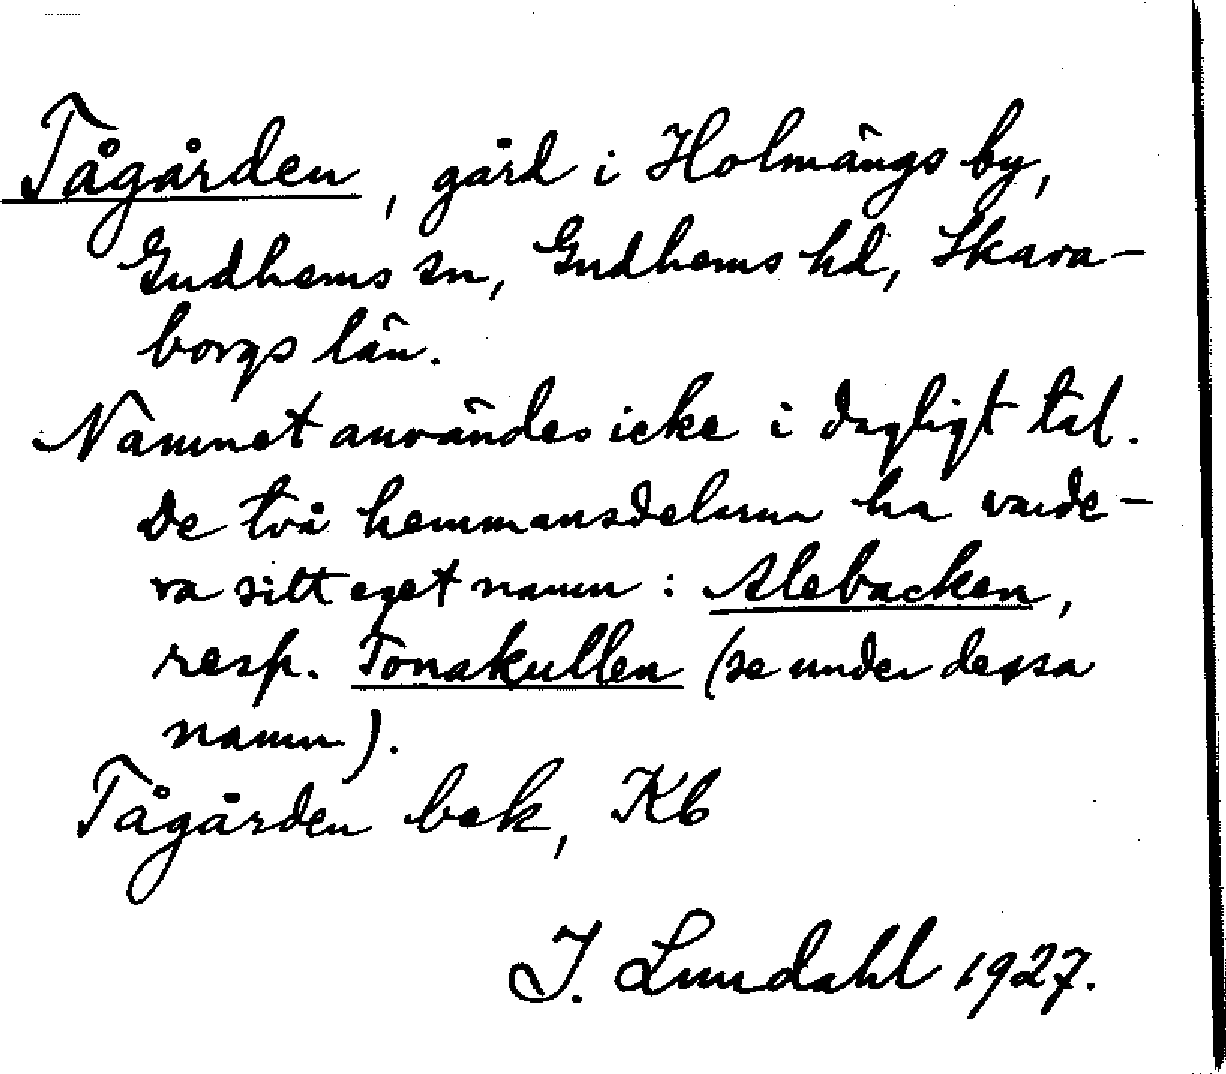 Tågården, gård i Holmängs by,
Gudhems sn, Gudhems hd, Skara-
borgs län.
Namnet användes icke i dagligt tal.
De två hemmansdelarna ha varde-
ra sitt eget namn: Alebacken,
resp. Tonakullen (se under dessa
namn).
Tågården bek, Kb
I. Lundahl 1927.